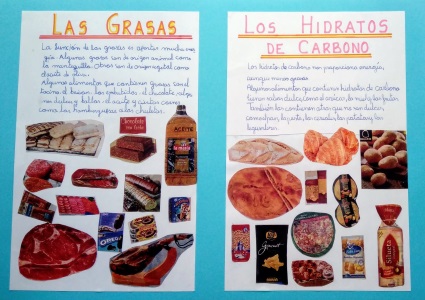 LAS GRASAS
La función de las grasas es aportar mucha ener-
gía. Algunas grasas son de origen animal como
la mantequilla. Otras son de origen vegetal como
el aceite de oliva.
Algunos alimentos que contienen grasas son: el
tocino, el bacon, los embutidos, el chocolate, algu-
nos dulces y bollos, el aceite y ciertas carnes
como las hamburguesas o las chuletas.
ACEITE
OREO
LOS HIDRATOS
DE CARBONO
Los hidratos de carbono nos proporcionan energía,
aunque menos grasas.
Algunos alimentos que contienen hidratos de carbono
tienen sabor dulce, como el azúcar, la miel y las frutas.
También los contienen otros que no son dulces,
como el pan, la pasta, los cereales, las patatas y las
legumbres.
Gourmet
Silueta